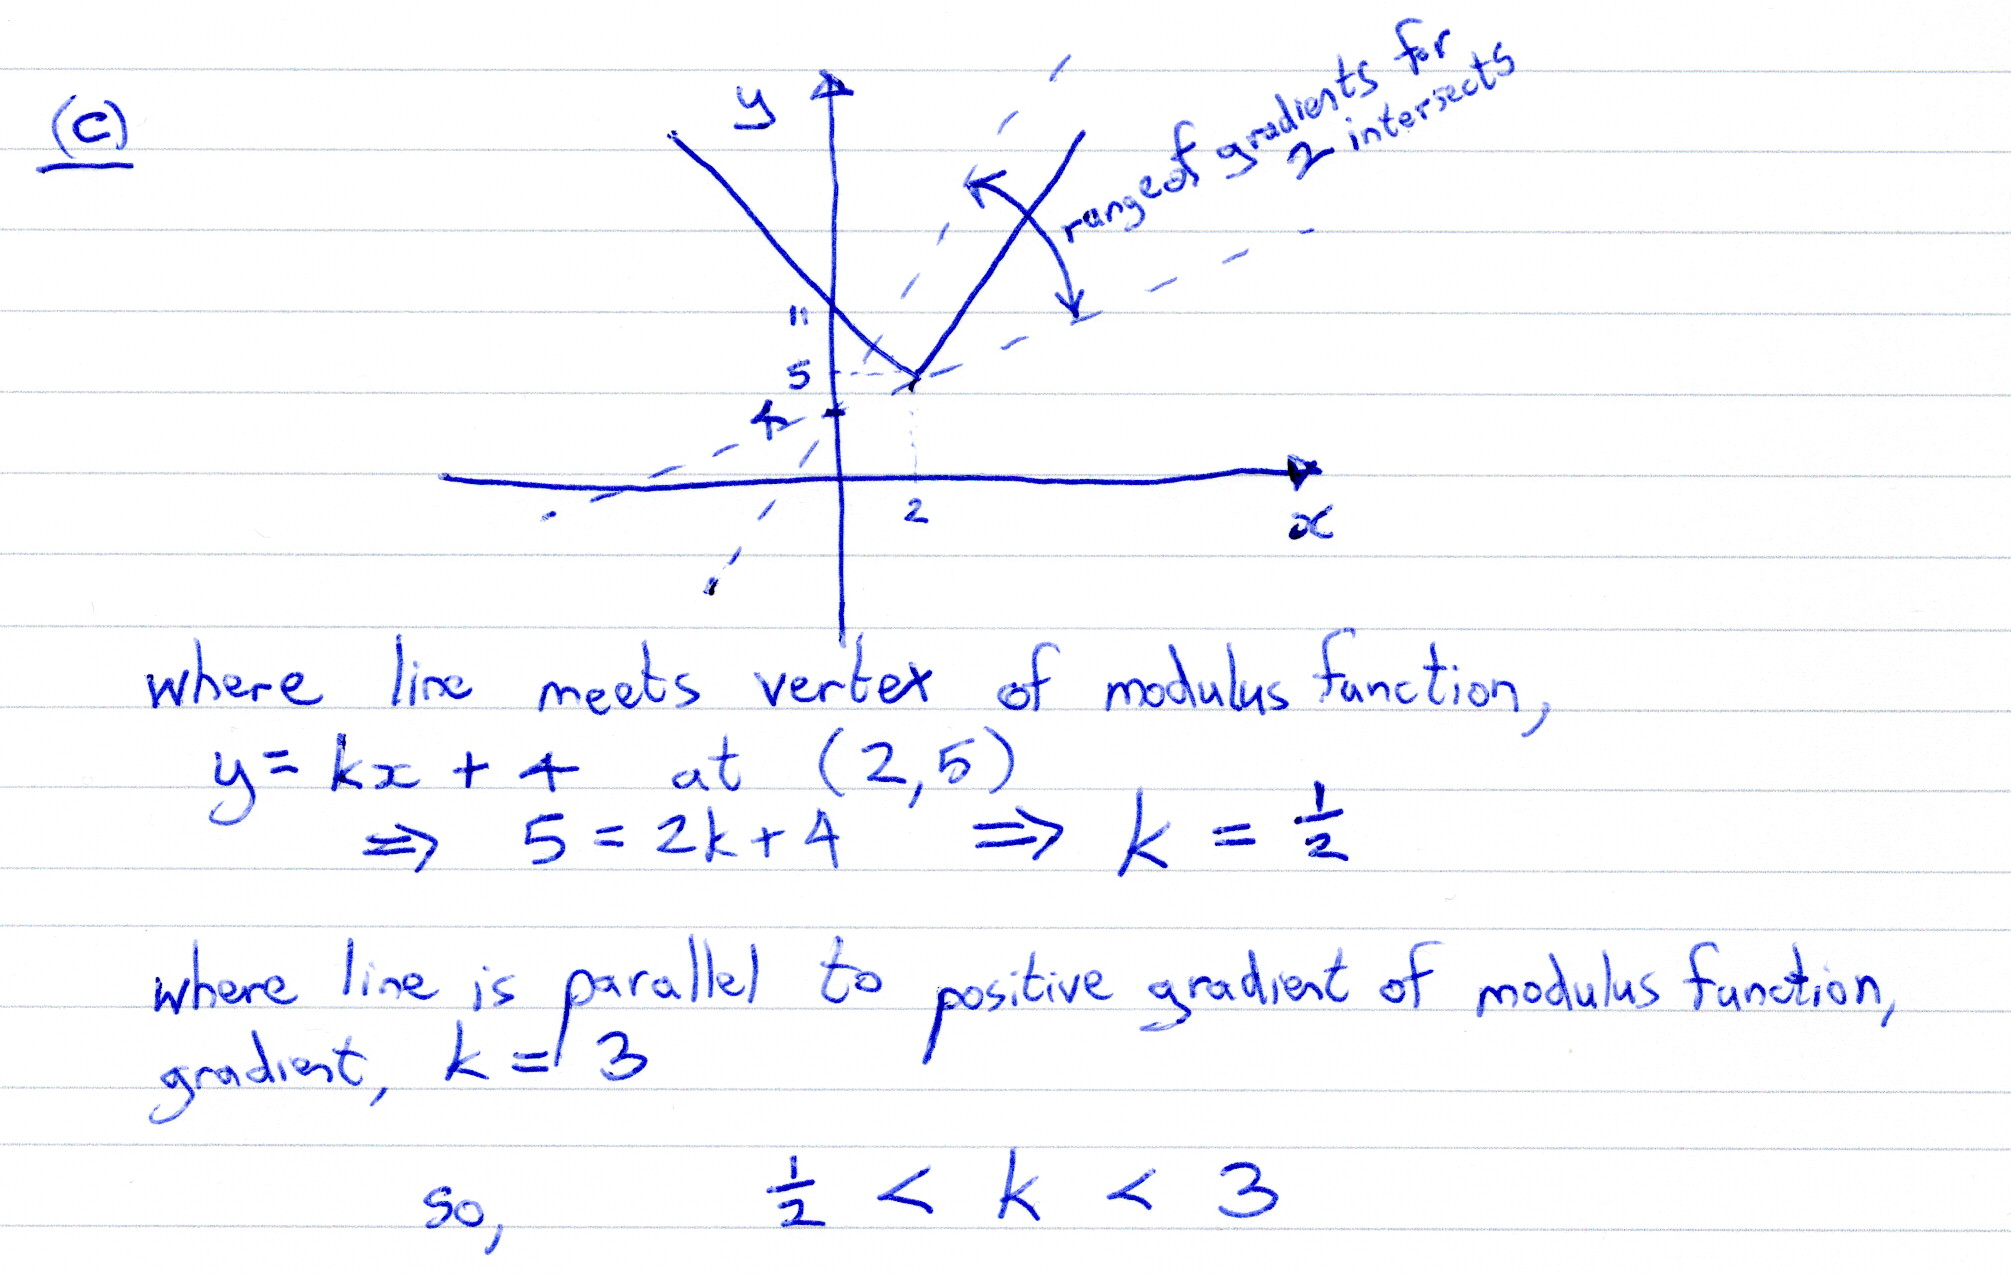 (c)
y
range of gradients for
2 intersects
11
5
4
2
x
where line meets vertex of modulus function,
y = kx + 4 at (2,5)
⇒ 5 = 2k + 4 ⇒ k = 1/2
where line is parallel to positive gradient of modulus function,
gradient, k = 3
so, 1/2 < k < 3